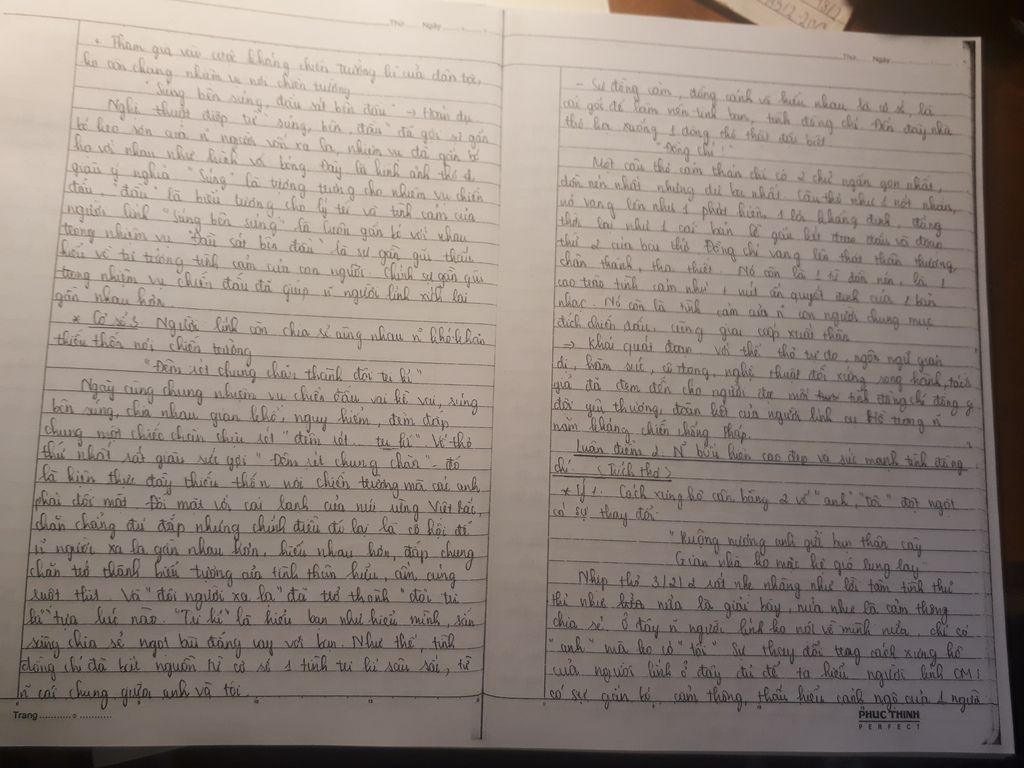 Thứ ........ Ngày ........
+ Tham gia vào cuộc kháng chiến trường kì của dân tộc,
họ còn chung nhiệm vụ nơi chiến trường
"Súng bên súng, đầu sát bên đầu" → Hoán dụ
Nghệ thuật điệp từ "súng, bên, đầu" đã gợi sự gắn
bó keo sơn của n~ người vốn xa lạ, nhiệm vụ đã gắn bó
họ với nhau như hình với bóng. Đây là hình ảnh thơ đc
giàu ý nghĩa "Súng" là tượng trưng cho nhiệm vụ chiến
đấu "đầu" là biểu tượng cho lý trí và tình cảm của
người lính "Súng bên súng" là luôn gắn bó với nhau
trong nhiệm vụ "Đầu sát bên đầu" là sự gần gũi thấu
hiểu về tư tưởng tình cảm của con người. Chính sự gần gũi
trong nhiệm vụ chiến đấu đã giúp n~ người lính xích lại
gần nhau hơn.
* Cơ sở 3 Người lính còn chia sẻ cùng nhau n~ khó khăn
thiếu thốn nơi chiến trường
"Đêm rét chung chăn thành đôi tri kỉ"
Ngày cùng chung nhiệm vụ chiến đấu vai kề vai, súng
bên súng, chia nhau gian khổ, nguy hiểm, đêm đắp
chung một chiếc chăn chịu rét "đêm rét ... tri kỉ" Vế thơ
thứ nhất rất giàu sức gợi "Đêm rét chung chăn" - đó
là hiện thực đầy thiếu thốn nơi chiến trường mà các anh
phải đối mặt. Đối mặt với cái lạnh của núi rừng Việt Bắc,
chăn chẳng đủ đắp nhưng chính điều đó lại là cơ hội để
n~ người xa lạ gần nhau hơn, hiểu nhau hơn, đắp chung
chăn trở thành biểu tượng của tình thân hữu, ấm cúng
ruột thịt. Và "đôi người xa lạ" đã trở thành "đôi tri
kỉ" tựa lúc nào. "Tri kỉ" là hiểu bạn như hiểu mình, sẵn
sàng chia sẻ ngọt bùi đắng cay với bạn. Như thế, tình
đồng chí đã bắt nguồn từ cơ sở 1 tình tri kỉ sâu sắc, từ
n~ cái chung giữa anh và tôi
Trang ........ ........
Thứ ........ Ngày ........
- Sự đồng cảm, đồng cảnh và hiểu nhau là cơ sở, là
cái gốc để làm nên tình bạn, tình đồng chí. Đến đây nhà
thơ hạ xuống 1 dòng thơ thật đặc biệt
"Đồng chí!"
Một câu thơ cảm thán chỉ có 2 chữ ngắn gọn nhất,
dồn nén nhất nhưng dư ba nhất câu thơ như 1 nốt nhấn,
nó vang lên như 1 phát hiện, 1 lời khẳng định, đồng
thời lại như 1 cái bản lề gắn kết đoạn đầu và đoạn
thứ 2 của bài thơ Đồng chí vang lên thật thân thương,
chân thành, tha thiết. Nó còn là 1 từ dồn nén, là 1
cao trào tình cảm như 1 nút ấn quyết định của 1 bản
nhạc. Nó còn là tình cảm của n~ con người chung mục
đích chiến đấu, cùng giai cấp xuất thân
→ Khái quát đoạn với thể thơ tự do, ngôn ngữ giản
dị, hàm súc, cô đọng, nghệ thuật đối xứng song hành, tác
giả đã đem đến cho người đọc mối tình đồng chí đồng
đội yêu thương, đoàn kết của người lính cụ Hồ trong n~
năm kháng chiến chống Pháp.
Luận điểm 2. N~ biểu hiện cao đẹp và sức mạnh tình đồng
chí (Trích thơ)
* Ý 1. Cách xưng hô cân bằng 2 vế "anh", "tôi" đột ngột
có sự thay đổi
"Ruộng nương anh gửi bạn thân cày
Gian nhà ko mặc kệ gió lung lay"
Nhịp thơ 3/2/2 rất nhẹ nhàng như lời tâm tình thủ
thỉ như nửa là giãi bày, nửa như là cảm thông
chia sẻ. Ở đây n~ người lính ko nói về mình nữa, chỉ có
"anh" mà ko có "tôi" Sự thay đổi trong cách xưng hô
của người lính ở đây đủ để ta hiểu người lính CM:
có sự gắn bó, cảm thông, thấu hiểu cảnh ngộ của 1 người
PHUC THINH
PERFECT